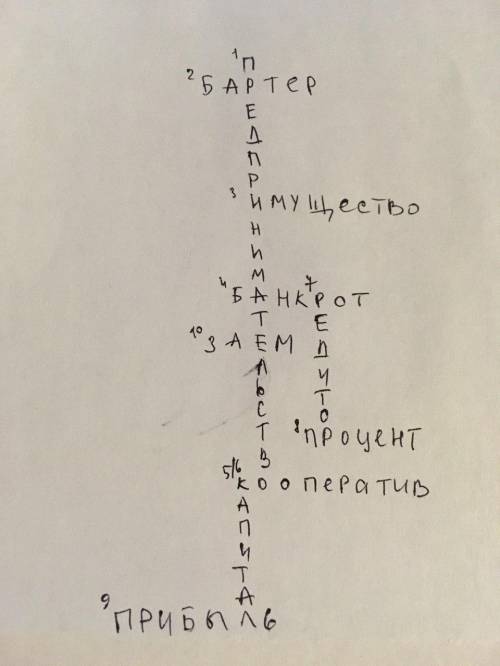 1 ПРЕДПРИНИМАТЕЛЬСТВО
2 БАРТЕР
3 ИМУЩЕСТВО
4 БАНКРОТ
7 РЕДИТОР
10 ЗАЕМ
8 ПРОЦЕНТ
5/6 КООПЕРАТИВ
КАПИТАЛ
9 ПРИБЫЛЬ